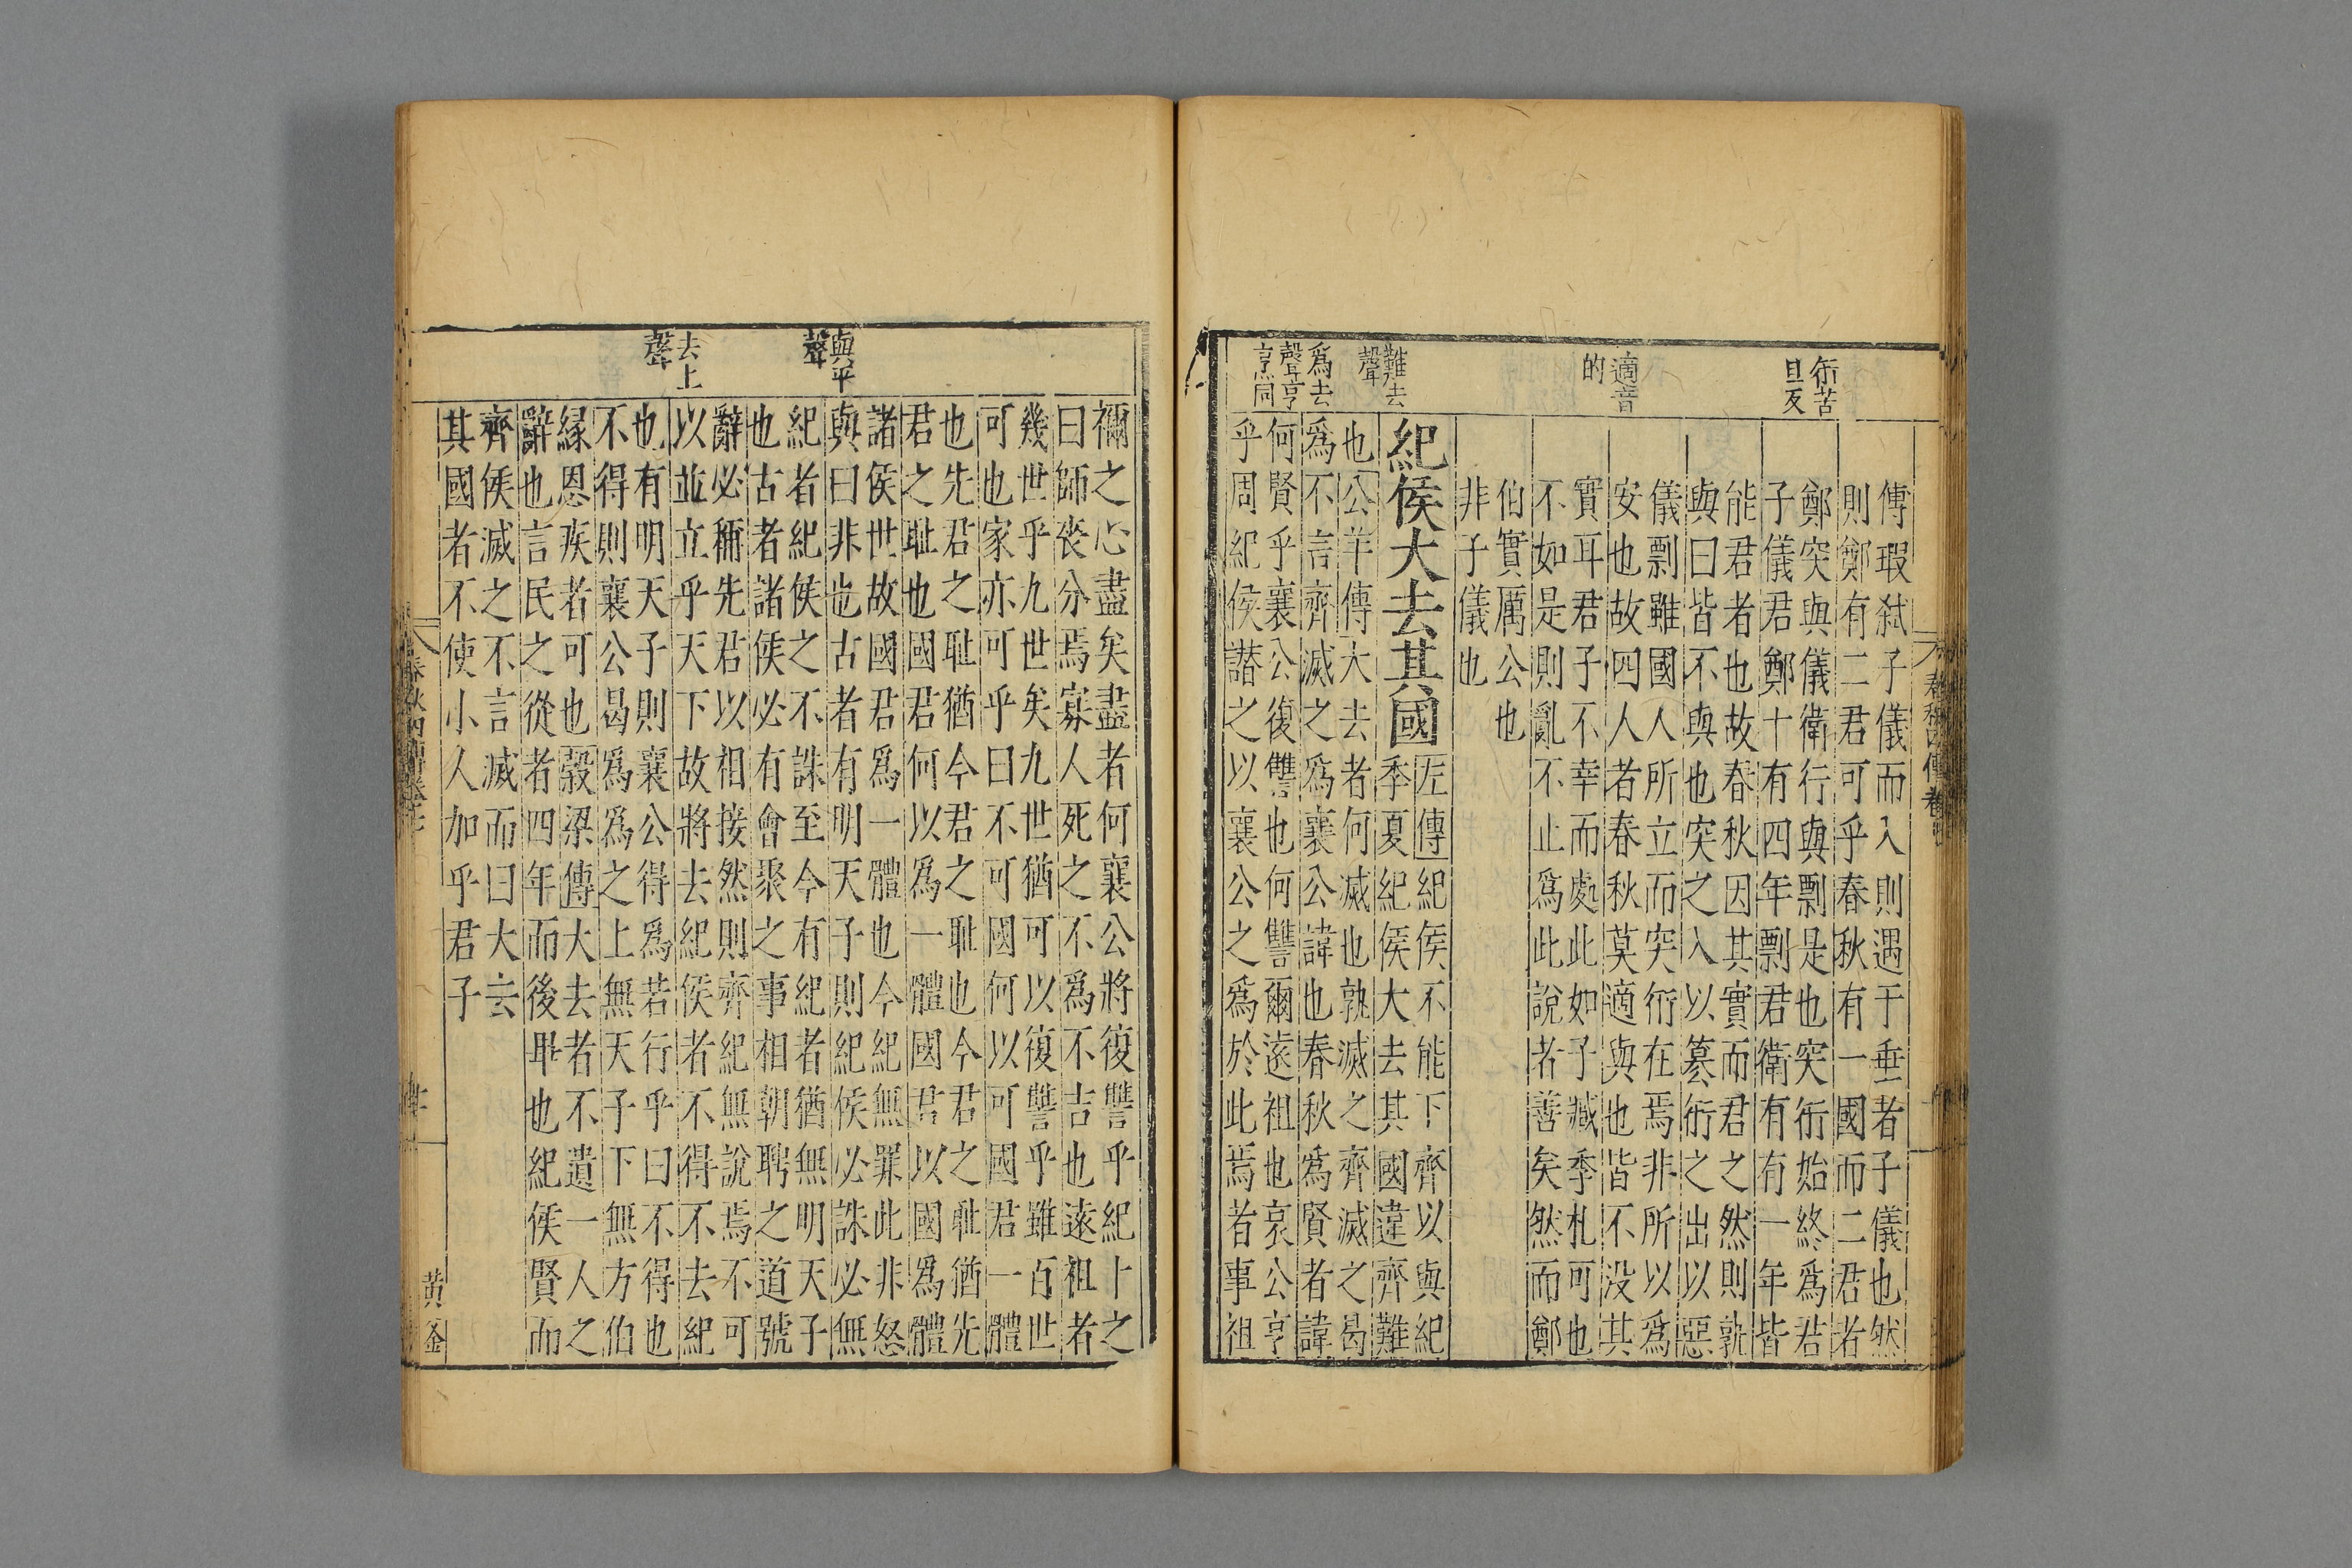 衎苦
旦反
適音
的
難去
聲
爲去
聲亨
烹同
傅瑕弑子儀而入則遇于垂者子儀也然
則鄭有二君可乎春秋有一國而二君者
鄭突與儀衛衎與剽是也突衎始終爲君
子儀君鄭十有四年剽君衛有有一年皆
能君者也故春秋因其實而君之然則孰
與曰皆不與也突之入以簒衎之出以惡
儀剽雖國人所立而突衎在焉非所以爲
安也故四人者春秋莫適與也皆不没其
實耳君子不幸而處此如子臧季札可也
不如是則亂不止爲此說者善矣然而鄭
伯實厲公也
非子儀也
紀侯大去其國
左傳紀侯不能下齊以與紀
季夏紀侯大去其國違齊難
也公羊傳大去者何滅也孰滅之齊滅之曷
爲不言齊滅之爲襄公諱也春秋爲賢者諱
何賢乎襄公復讐也何讐爾遠祖也哀公亨
乎周紀侯譖之以襄公之爲於此焉者事祖
與平
聲
去上
聲
禰之心盡矣盡者何襄公將復讐乎紀卜之
曰師喪分焉寡人死之不爲不吉也遠祖者
幾世乎九世矣九世猶可以復讐乎雖百世
可也家亦可乎曰不可國何以可國君一體
也先君之耻猶今君之耻也今君之耻猶先
君之耻也國君何以爲一體國君以國爲體
諸侯世故國君爲一體也今紀無罪此非怒
與曰非也古者有明天子則紀侯必誅必無
紀者紀侯之不誅至今有紀者猶無明天子
也古者諸侯必有會聚之事相朝聘之道號
辭必稱先君以相接然則齊紀無說焉不可
以並立乎天下故將去紀侯者不得不去紀
也有明天子則襄公得爲若行乎曰不得也
不得則襄公曷爲爲之上無天子下無方伯
緣恩疾者可也穀梁傳大去者不遺一人之
辭也言民之從者四年而後畢也紀侯賢而
齊侯滅之不言滅而曰大去
其國者不使小人加乎君子
黃釜